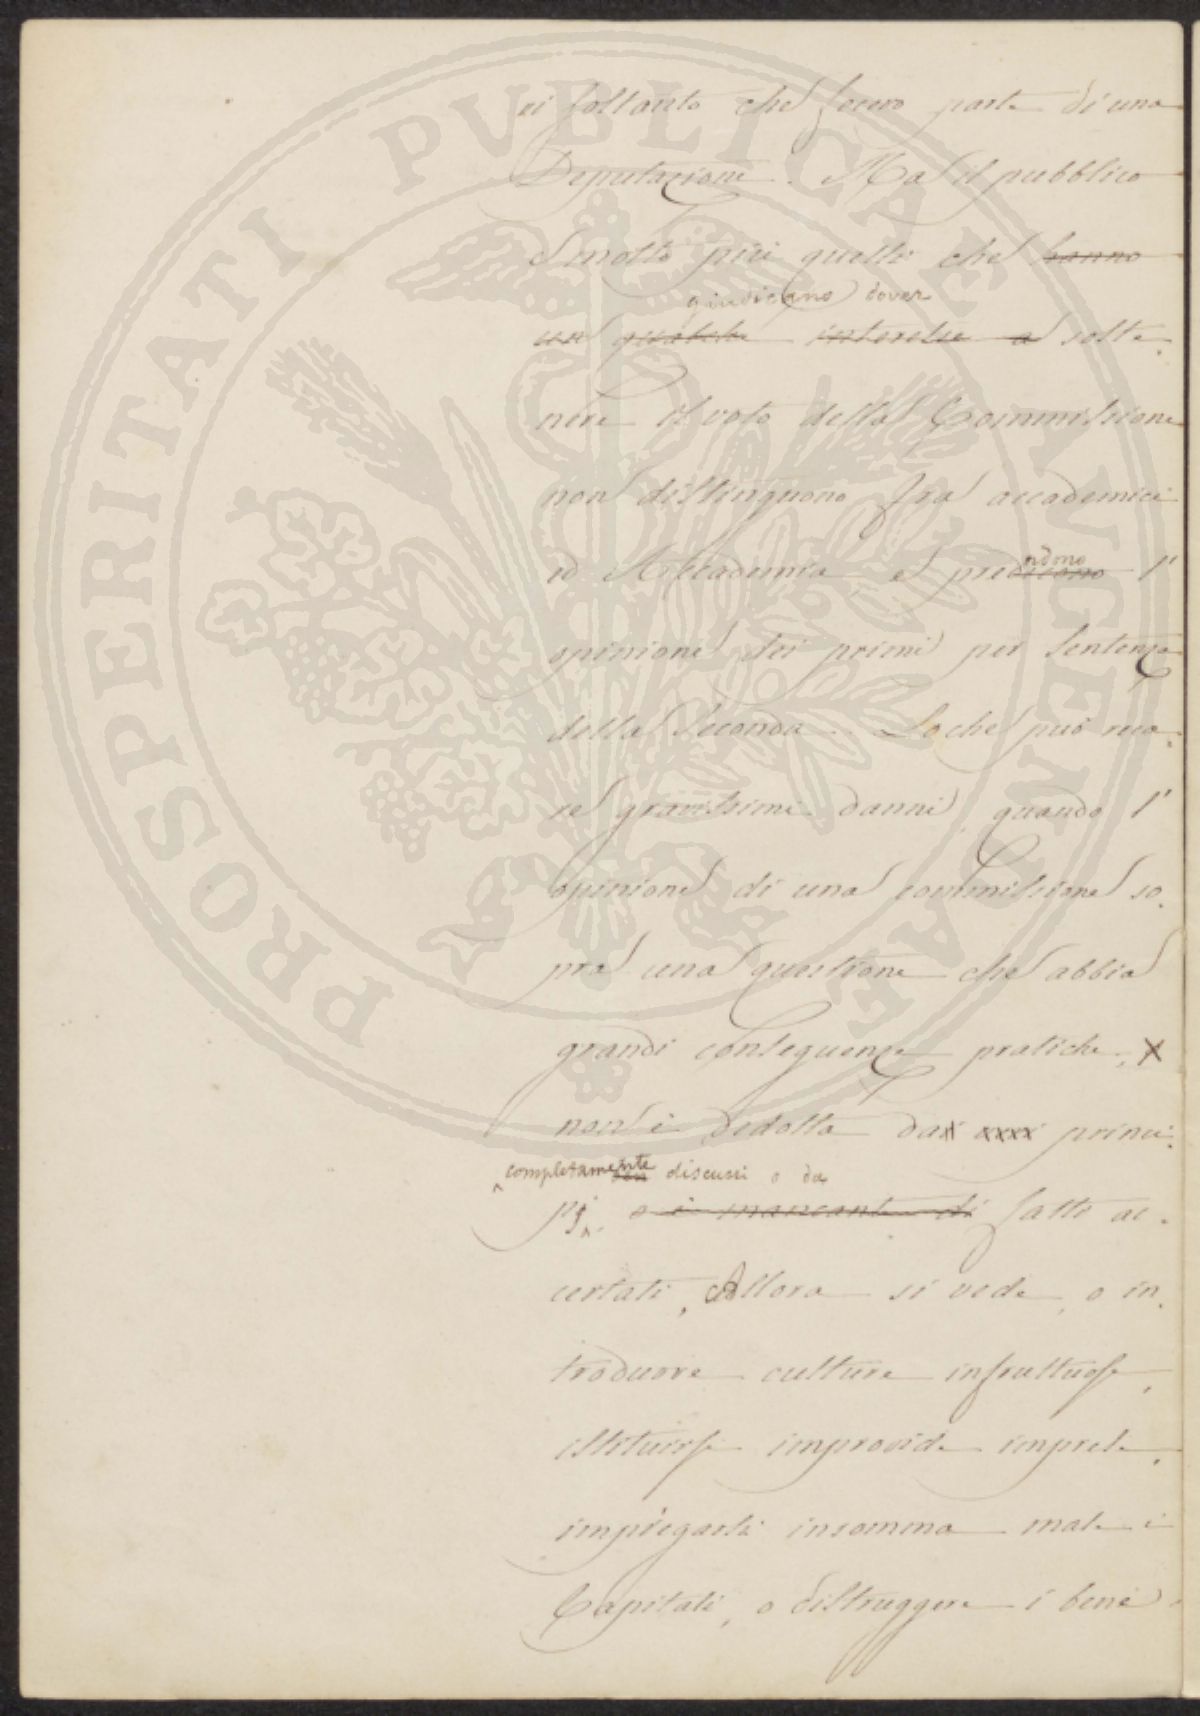 ei soltanto che fecero parte di una
Deputazione. Ma il pubblico
e molto più quelli che hanno
giudicano dover
un qualche interesse a soste-
nere il voto della Commissione
non distinguono fra accademici
ed Accademia, e prendono l'
opinione dei primi per sentenza
della seconda. Loche può reca-
re gravissimi danni, quando l'
opinione di una commissione so-
pra una questione che abbia
grandi conseguenze pratiche, X
non è dedotta da princi-
completamente discussi o da
pj o è mancante di fatti ac-
certati, allora si vede, o in-
trodurre culture infruttuose,
istituirsi improvide imprese,
impiegarsi insomma male i
Capitali, o distruggere i beni
PROSPERITATI PVBLICAE AVGENDAE